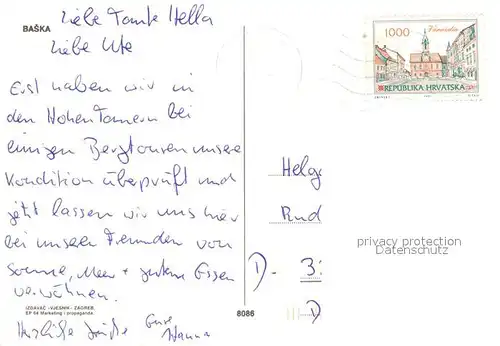 BAŠKA
Liebe Tante Hella
Liebe Ute
Erst haben wir in
den Hohen Tauern bei
einigen Bergtouren unsere
Kondition überprüft und
jetzt lassen wir uns hier
bei unseren Freunden von
Sonne, Meer + gutem Essen
verwöhnen.
IZDAVAČ »VJESNIK« - ZAGREB
EP 64 Marketing i propaganda
8086
Herzliche Grüße Eure
Hanna
1000
Varaždin
REPUBLIKA HRVATSKA
Helga
Rud
D - 3
D
privacy protection
Datenschutz